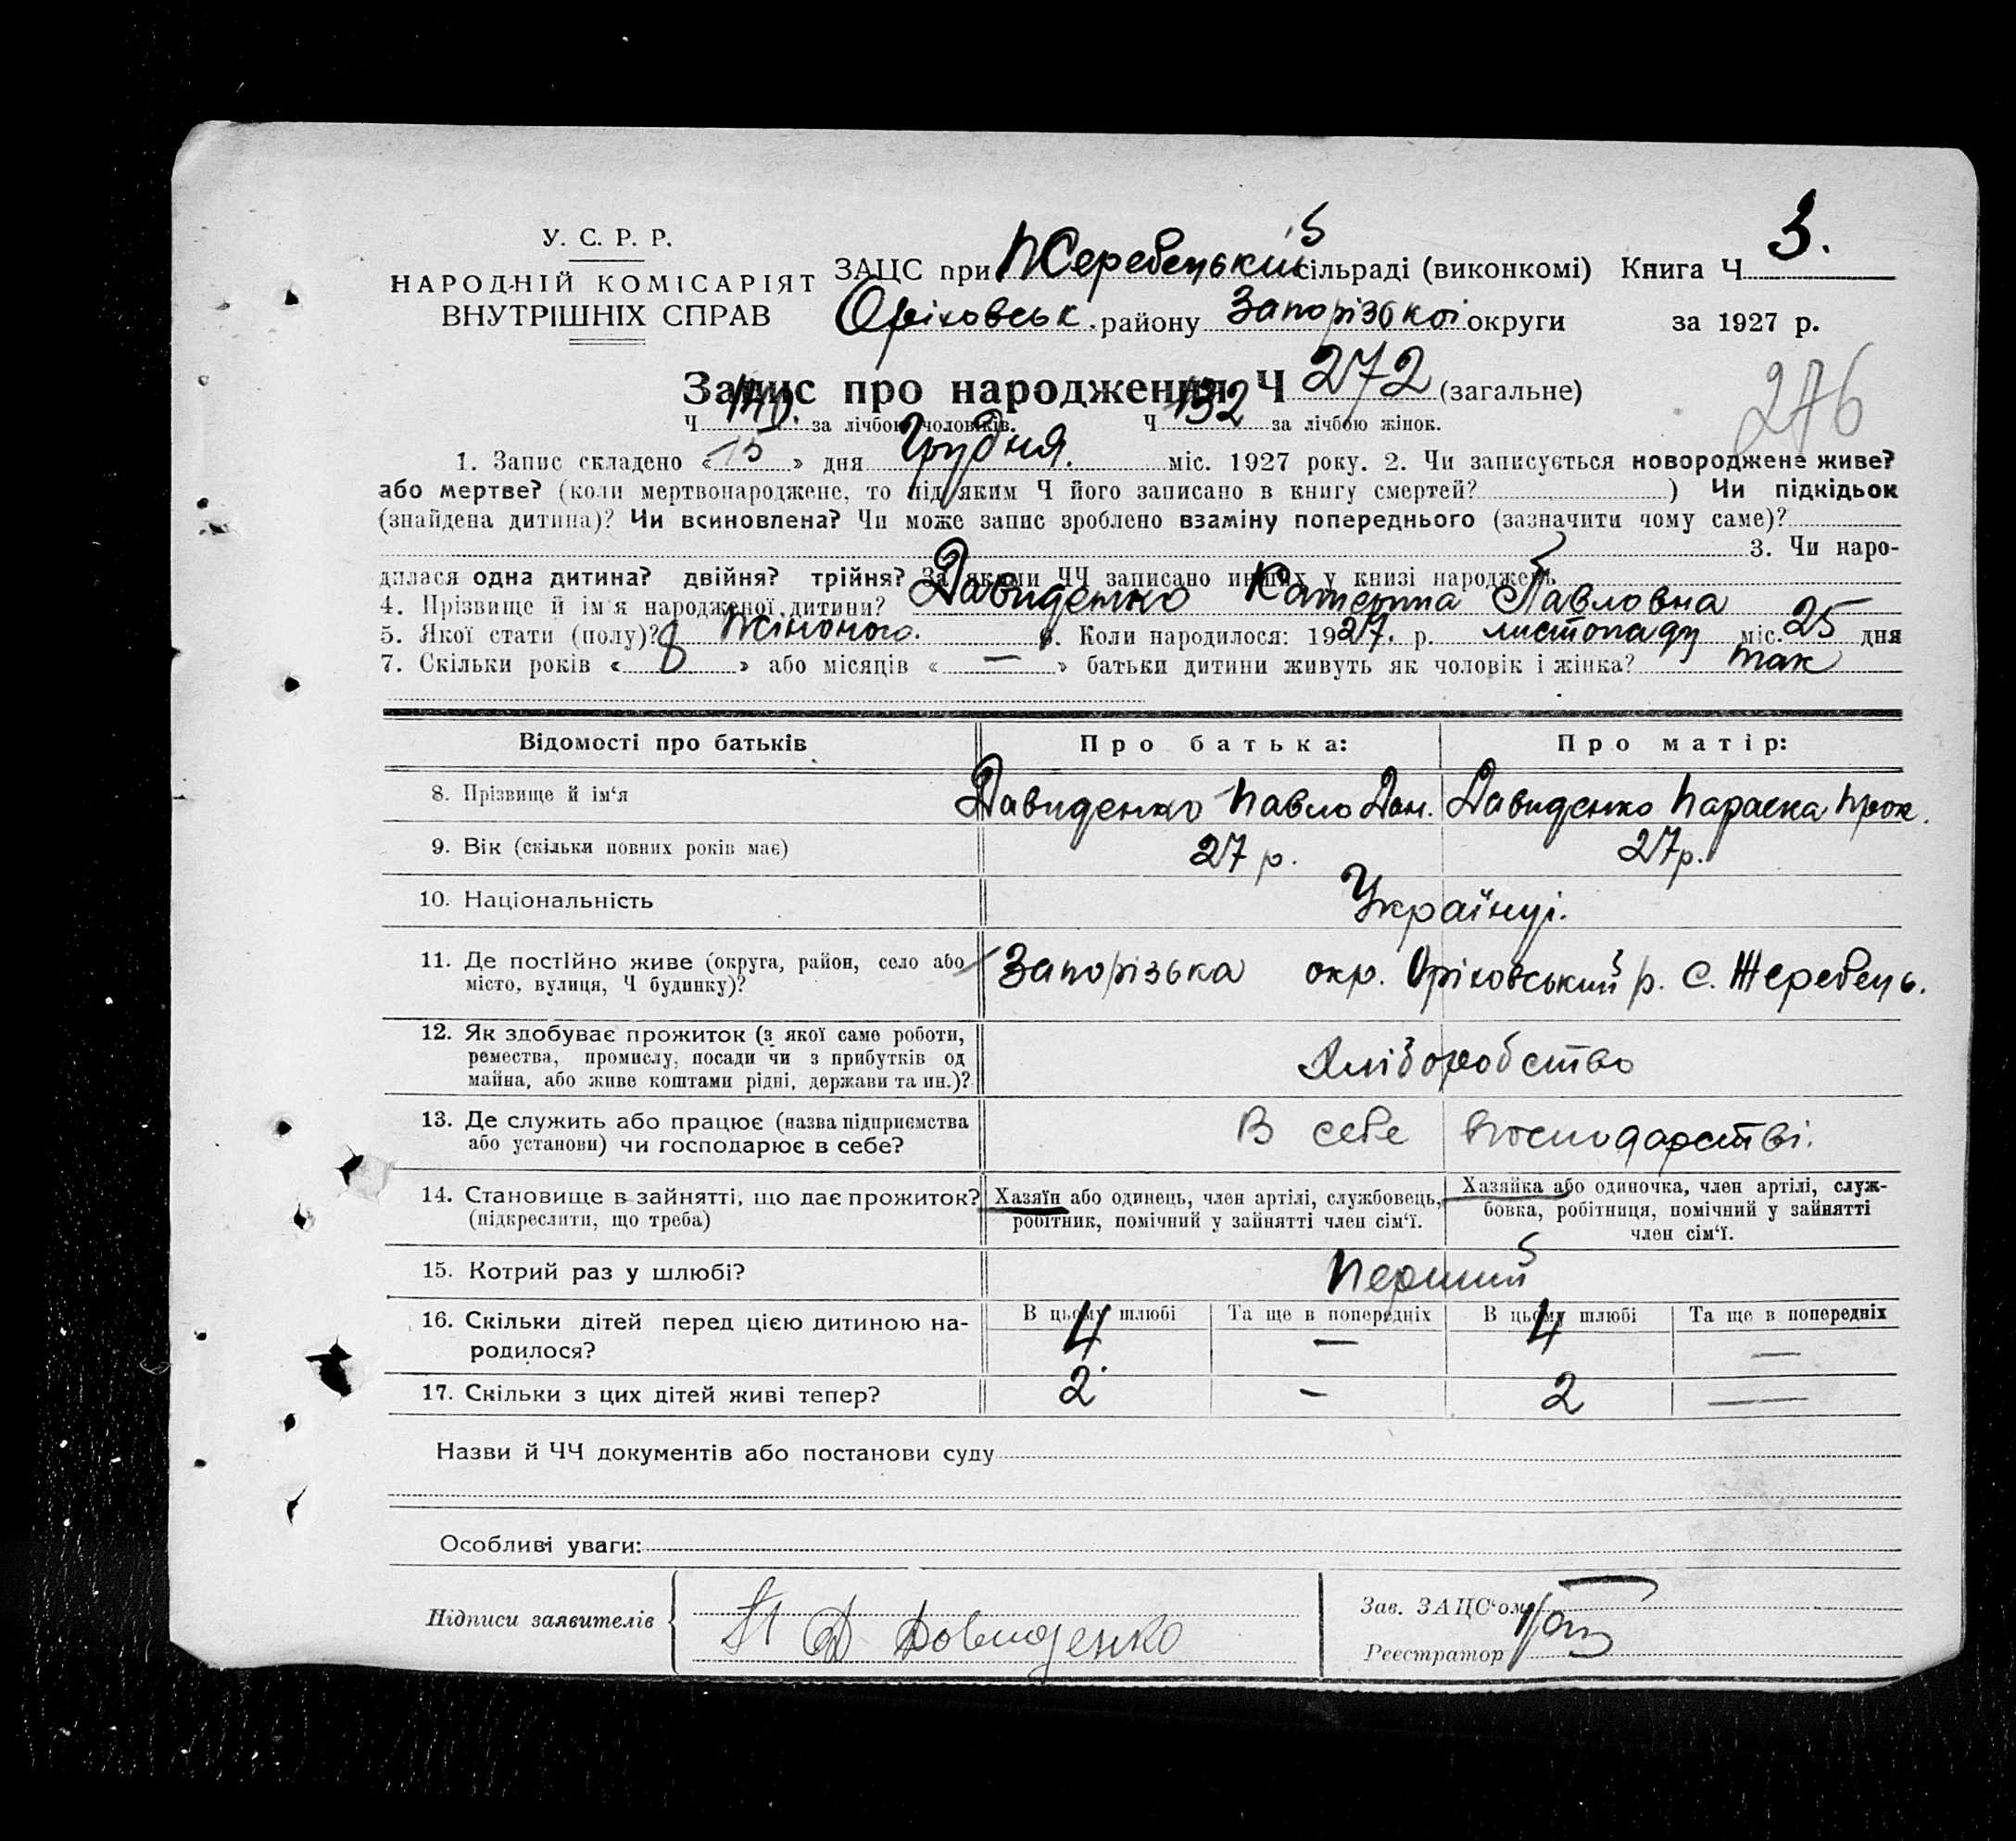 У. С. Р. Р.
НАРОДНІЙ КОМІСАРІЯТ
ВНУТРІШНІХ СПРАВ
ЗАЦС при Жеребецький сільраді (виконкомі) Книга Ч 3.
Оріховськ. району Запорізької округи за 1927 р.
Запис про народження Ч 272 (загальне)
276
Ч 140. за лічбою чоловіків. Ч 132 за лічбою жінок.
1. Запис складено « 15 » дня Грудня. міс. 1927 року. 2. Чи записується новороджене живе?
або мертве? (коли мертвонароджене, то під яким Ч його записано в книгу смертей? ) Чи підкідьок
(знайдена дитина)? Чи всиновлена? Чи може запис зроблено взаміну попереднього (зазначити чому саме)?
3. Чи наро-
дилася одна дитина? двійня? трійня? За якими ЧЧ записано инших у книзі народжень
4. Прізвище й ім'я народженої дитини? Давиденко Катерина Павловна
5. Якої стати (полу)? Жіночого. 6. Коли народилося: 1927. р. листопаду міс. 25 дня
7. Скільки років « 8 » або місяців « — » батьки дитини живуть як чоловік і жінка? так
Відомості про батьків Про батька: Про матір:
8. Прізвище й ім'я Давиденко Павло Дан. Давиденко Параска Прок.
9. Вік (скільки повних років має) 27 р. 27 р.
10. Національність Українці.
11. Де постійно живе (округа, район, село або
місто, вулиця, Ч будинку)? Запорізька окр. Оріховський р. С. Жеребець.
12. Як здобуває прожиток (з якої саме роботи,
ремества, промислу, посади чи з прибутків од
майна, або живе коштами рідні, держави та ин.)? Хліборобство
13. Де служить або працює (назва підприємства
або установи) чи господарює в себе? В себе в господарстві.
14. Становище в зайнятті, що дає прожиток?
(підкреслити, що треба)
Хазяїн або одинець, член артілі, службовець,
робітник, помічний у зайнятті член сім'ї.
Хазяйка або одиночка, член артілі, служ-
бовка, робітниця, помічний у зайнятті
член сім'ї.
15. Котрий раз у шлюбі? Перший
16. Скільки дітей перед цією дитиною на-
родилося?
В цьому шлюбі Та ще в попередніх В цьому шлюбі Та ще в попередніх
4 — 4 —
17. Скільки з цих дітей живі тепер? 2 — 2 —
Назви й ЧЧ документів або постанови суду
Особливі уваги:
Підписи заявителів Давиденко
Зав. ЗАЦС'ом
Реєстратор